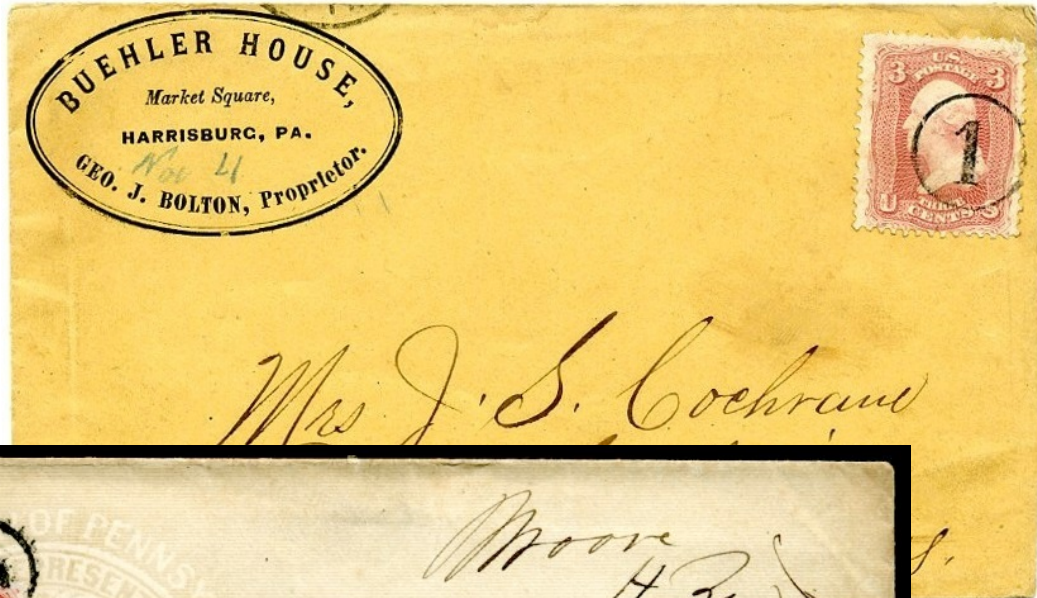 BUEHLER HOUSE,
Market Square,
HARRISBURG, PA.
Nov 4
GEO. J. BOLTON, Proprietor.
3 U.S. 3
POSTAGE
1
U THREE S
CENTS
Mrs J. S. Cochrane
OF PENNS
PRESEN
Moore